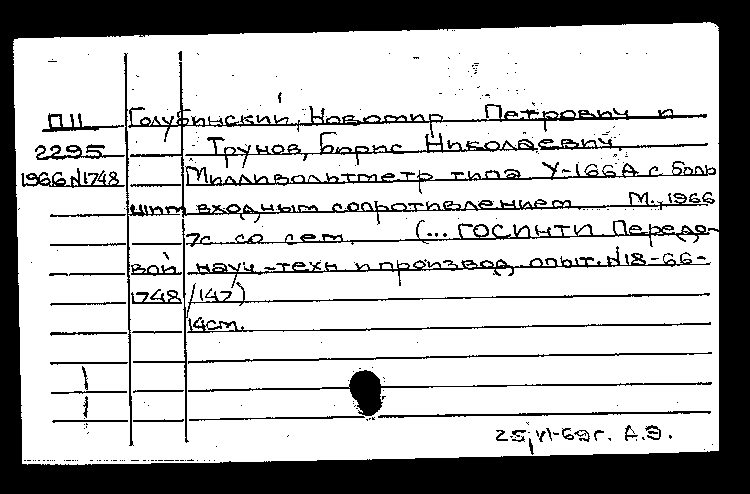 П11 Голубинский, Новомир Петрович и
2295 Трунов, Борис Николаевич.
1966 N1748 Милливольтметр типа У-166А с боль
шим входным сопротивлением М., 1966
7с со сет. (... ГОСИНТИ Передо-
вой науч.-техн и производ. опыт. N18-66-
1748/147)
14см.
25/VI-69г. А.Э.